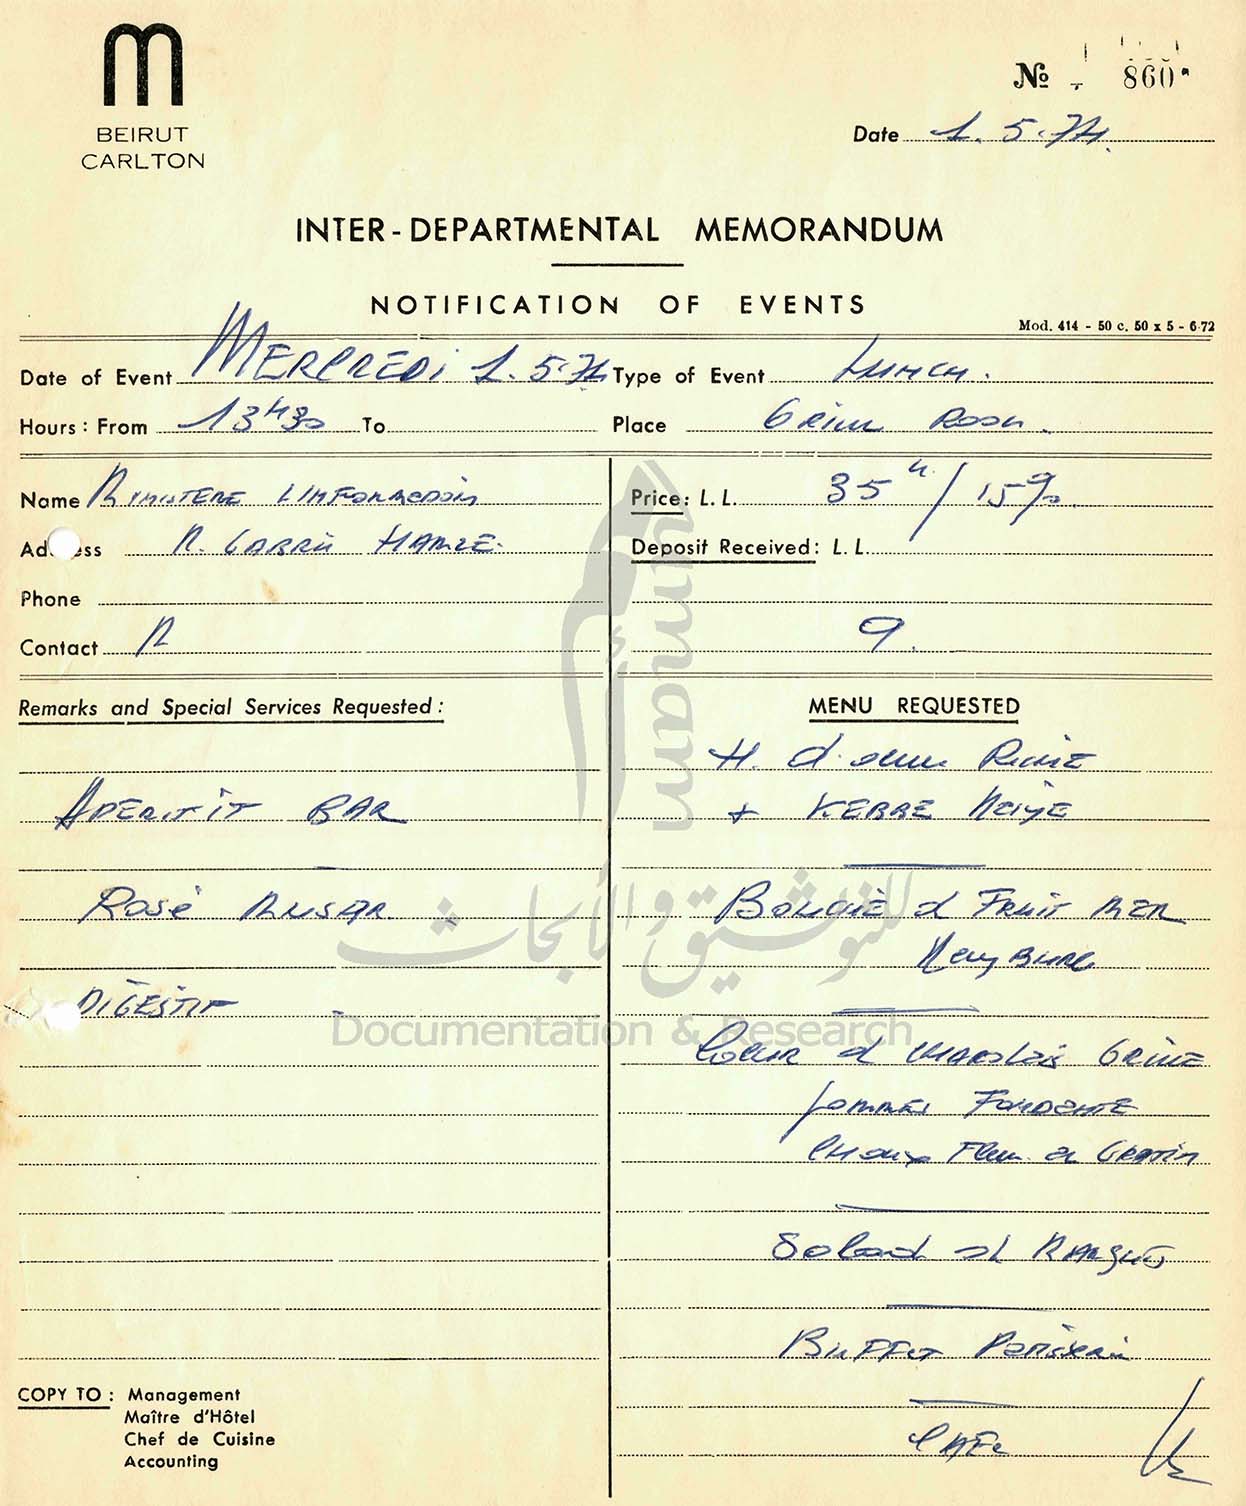 BEIRUT
CARLTON
№ 860
Date 1.5.74.
INTER-DEPARTMENTAL MEMORANDUM
NOTIFICATION OF EVENTS
Mod. 414 - 50 c. 50 x 5 - 6-72
Date of Event MERCREDI 1.5.74 Type of Event LUNCH.
Hours: From 13H30 To Place GRILL ROOM.
Name MINISTERE Price: L.L. 35 / 15%
Address M. HAMZE. Deposit Received: L.L.
Phone
Contact M 9.
Remarks and Special Services Requested: MENU REQUESTED
H. d'
+ KEBBE
APERITIF BAR
ROSÉ MUSAR d FRUIT MER
Newburg
DIGESTIF
Coeur d CHAROLAIS GRILLE
Pommes FONDANTE
CHOUX Fleur au GRATIN
Salad
BUFFET
CAFE
COPY TO: Management
Maître d'Hôtel
Chef de Cuisine
Accounting
أمم
umam
للتوثيق والأبحاث
Documentation & Research